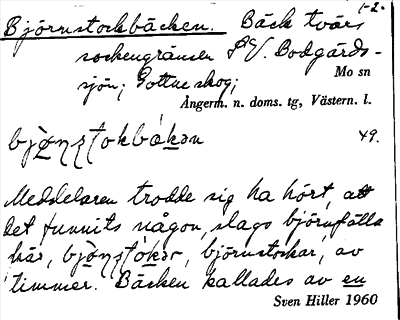 1-2.
Björnstockbäcken. Bäck tvärs
sockengränsen SV. Bodgårds-
sjön; Gottne skog;
Mo sn
Ångerm. n. doms. tg, Västern. l.
49.
Meddelaren trodde sig ha hört, att
det funnits någon slags björnfälla
här, björnstockar, av
timmer. Bäcken kallades av en
Sven Hiller 1960